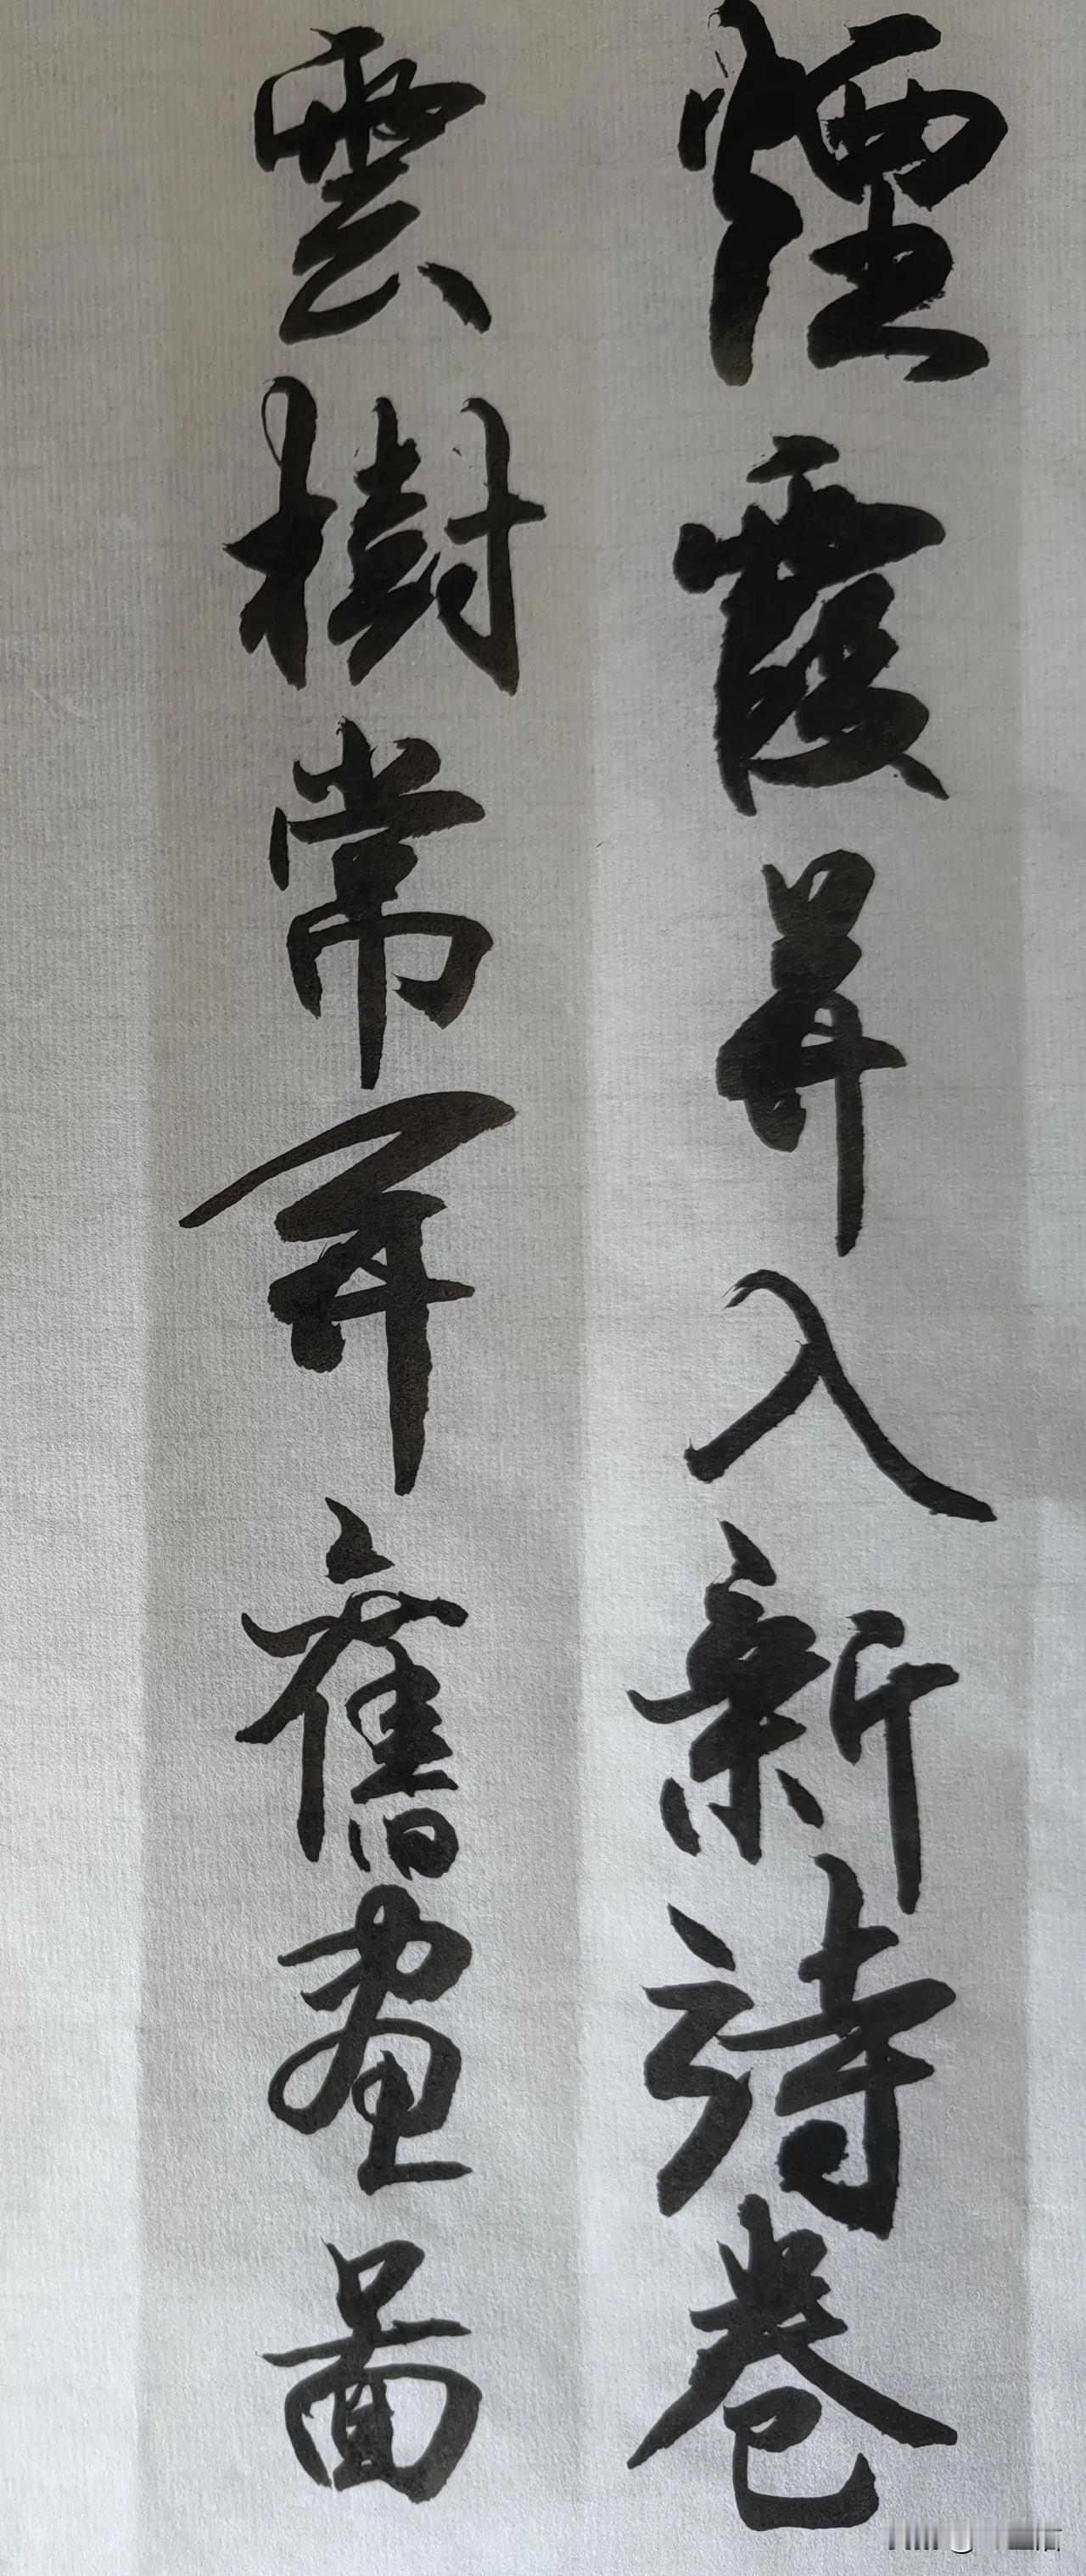 煙霞并入新詩卷
雲樹常開舊畫圖